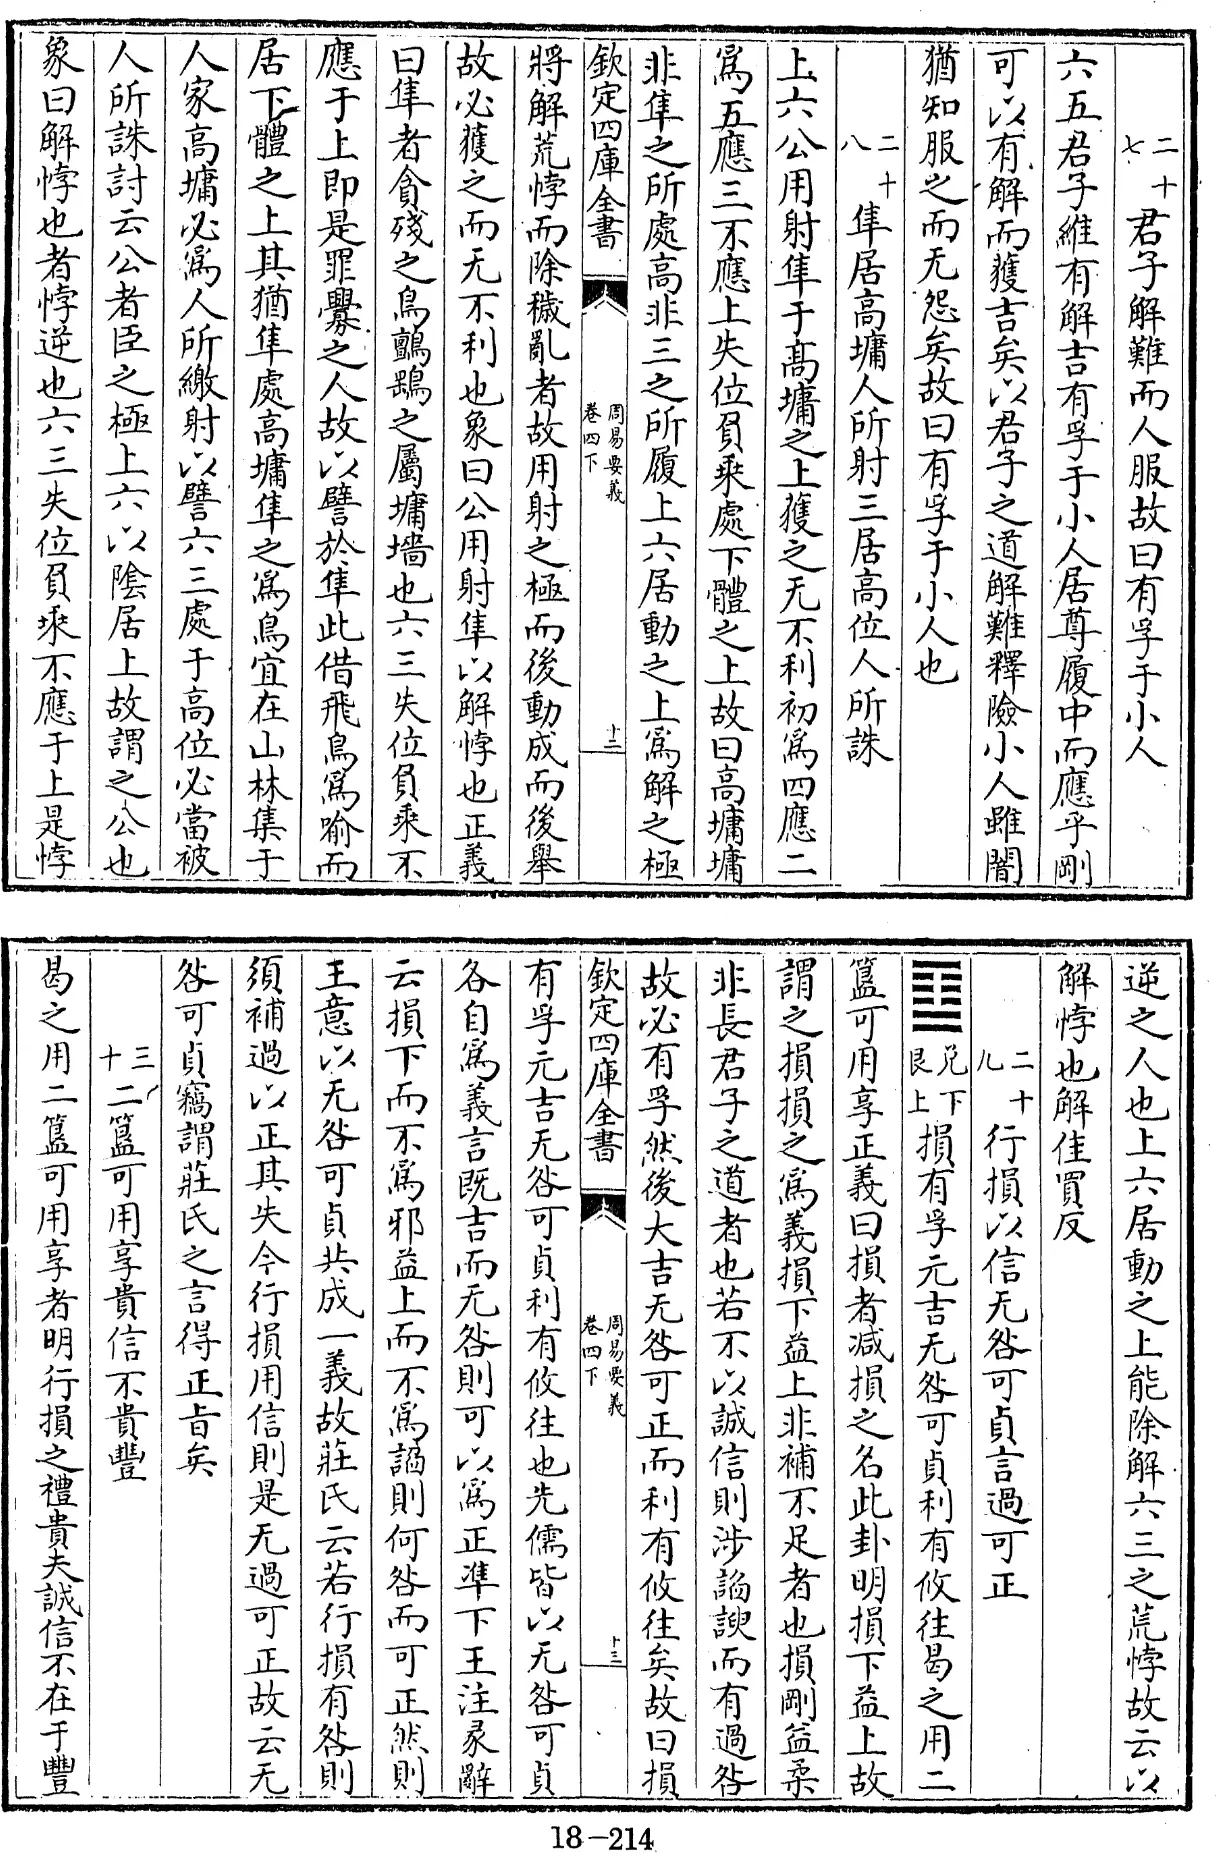 二十七君子解難而人服故曰有孚于小人
六五君子維有解吉有孚于小人居尊履中而應乎剛
可以有解而獲吉矣以君子之道解難釋險小人雖闇
猶知服之而无怨矣故曰有孚于小人也
二十八隼居高墉人所射三居高位人所誅
上六公用射隼于高墉之上獲之无不利初為四應二
為五應三不應上失位負乘處下體之上故曰高墉墉
非隼之所處高非三之所履上六居動之上為解之極
欽定四庫全書 周易要義 卷四下 十二
將解荒悖而除穢亂者故用射之極而後動成而後舉
故必獲之而无不利也象曰公用射隼以解悖也正義
曰隼者貪殘之鳥鸇鷂之屬墉墻也六三失位負乘不
應于上即是罪釁之人故以譬於隼此借飛鳥為喻而
居下體之上其猶隼處高墉隼之為鳥宜在山林集于
人家高墉必為人所繳射以譬六三處于高位必當被
人所誅討云公者臣之極上六以陰居上故謂之公也
象曰解悖也者悖逆也六三失位負乘不應于上是悖
逆之人也上六居動之上能除解六三之荒悖故云以
解悖也解佳買反
二十九行損以信无咎可貞言過可正
䷨兌下艮上損有孚元吉无咎可貞利有攸往曷之用二
簋可用享正義曰損者減損之名此卦明損下益上故
謂之損損之為義損下益上非補不足者也損剛益柔
非長君子之道者也若不以誠信則涉諂諛而有過咎
故必有孚然後大吉无咎可正而利有攸往矣故曰損
欽定四庫全書 周易要義 卷四下 十三
有孚元吉无咎可貞利有攸往也先儒皆以无咎可貞
各自為義言既吉而无咎則可以為正準下王注彖辭
云損下而不為邪益上而不為諂則何咎而可正然則
王意以无咎可貞共成一義故莊氏云若行損有咎則
須補過以正其失今行損用信則是无過可正故云无
咎可貞竊謂莊氏之言得正旨矣
三十二簋可用享貴信不貴豐
曷之用二簋可用享者明行損之禮貴夫誠信不在于豐
18-214